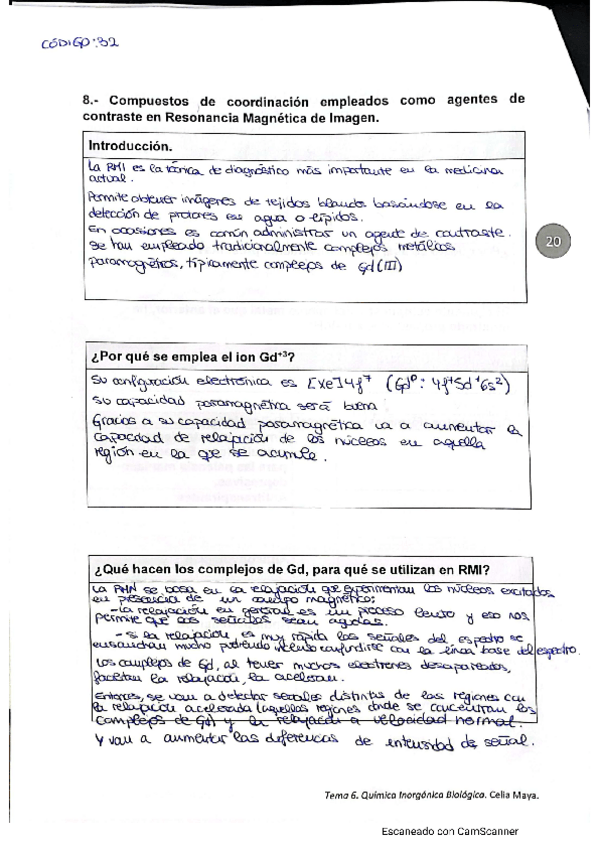 CÓDIGO: 32
8.- Compuestos de coordinación empleados como agentes de
contraste en Resonancia Magnética de Imagen.
Introducción.
La RMI es la técnica de diagnóstico más importante en la medicina
actual.
Permite obtener imágenes de tejidos blandos basándose en la
detección de protones en agua o lípidos.
En ocasiones es común administrar un agente de contraste.
Se han empleado tradicionalmente complejos metálicos
paramagnéticos, típicamente complejos de Gd(III)
20
¿Por qué se emplea el ion Gd+3?
Su configuración electrónica es [Xe]4f7 (Gd0: 4f75d16s2)
Su capacidad paramagnética será buena
Gracias a su capacidad paramagnética va a aumentar la
capacidad de relajación de los núcleos en aquella
región en la que se acumule.
¿Qué hacen los complejos de Gd, para qué se utilizan en RMI?
La RMN se basa en la relajación que experimentan los núcleos excitados
en presencia de un campo magnético:
-La relajación en general es un proceso lento y eso nos
permite que las señales sean agudas.
- si la relajación, es muy rápida las señales del espectro se
ensanchan mucho pudiendo incluso confundirse con la línea base del espectro.
Los complejos de Gd, al tener muchos electrones desapareados,
facilitan la relajación, la aceleran.
Entonces, se van a detectar señales distintas de las regiones con
la relajación acelerada (aquellas regiones donde se concentran los
complejos de Gd) y la relajación a velocidad normal.
Y van a aumentar las diferencias de intensidad de señal.
Tema 6. Química Inorgánica Biológica. Celia Maya.
Escaneado con CamScanner